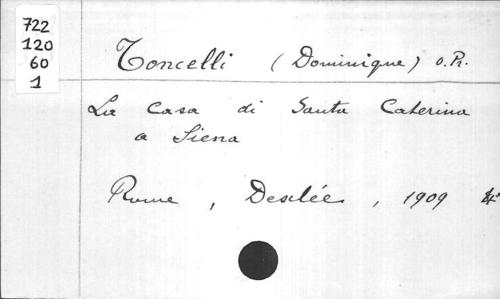 722
120
60
1
Toncelli (Dominique) O.Pr.
La Casa di Santa Caterina
a Siena
Rome, Desclée, 1909